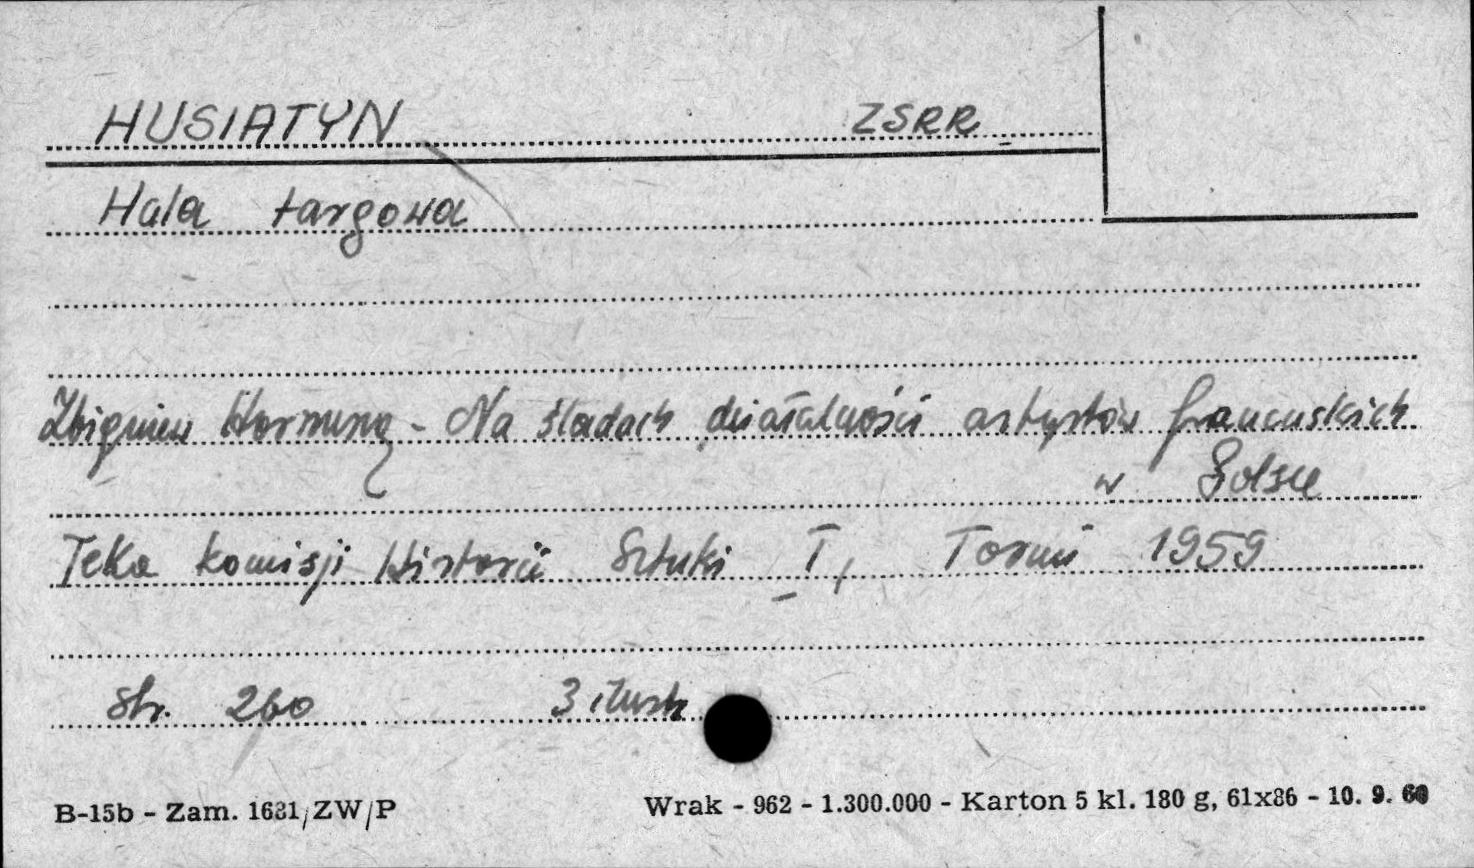 HUSIATYN ZSRR
Hala targowa
Zbigniew Hornung - Na śladach działalności artystów francuskich
w Polsce
Teka komisji Historii Sztuki I, Toruń 1959
str. 260 3 ilustr
B-15b - Zam. 1631/ZW/P Wrak - 962 - 1.300.000 - Karton 5 kl. 180 g, 61x86 - 10. 9. 60